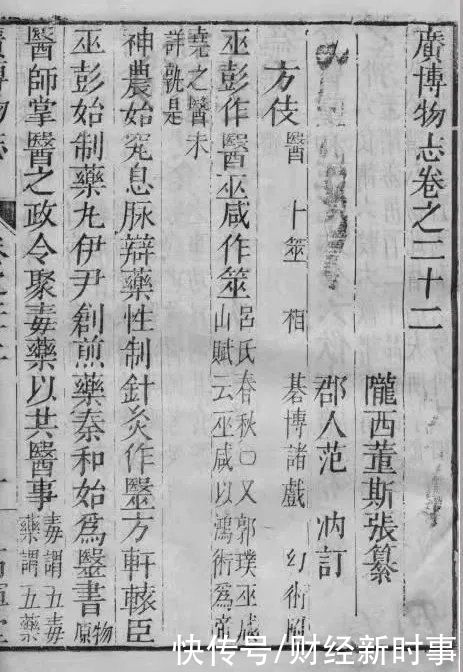 廣博物志卷之二十二
隴西董斯張纂
郡人范 汭訂
方伎 醫 卜筮 相 碁博諸戲 幻術
巫彭作醫巫咸作筮
呂氏春秋〇又郭璞巫咸
山賦云巫咸以鴻術為帝
堯之醫未
詳孰是
神農始究息脉辯藥性制針灸作醫方軒轅臣
巫彭始制藥丸伊尹創煎藥秦和始爲醫書
物
原
醫師掌醫之政令聚毒藥以共醫事
毒謂五毒
藥謂五藥
快传号/财经新时事